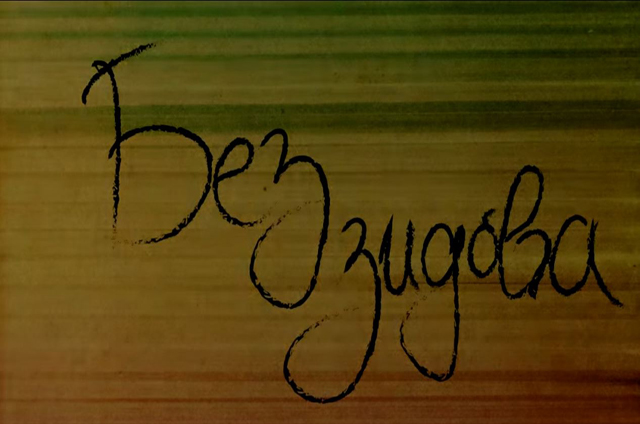 Без
зидова